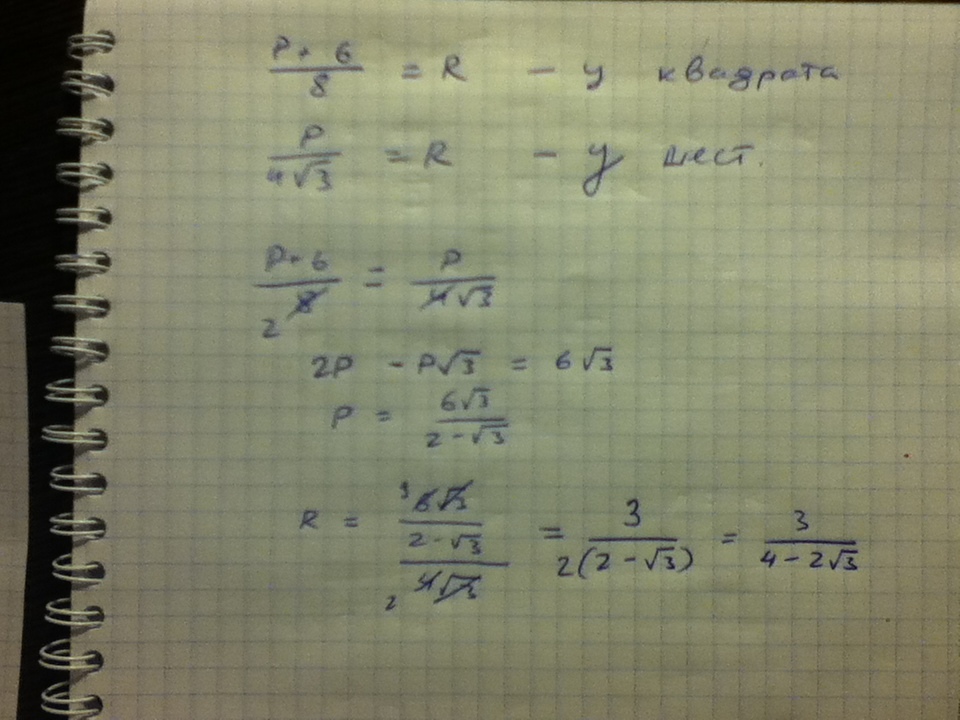 P+6/8 = R - у квадрата
P/4√3 = R - у шест.
P+6/8 2 = P/4√3
2P - P√3 = 6√3
P = 6√3/2-√3
R = 3 6√3/2-√3 / 2 4√3 = 3/2(2-√3) = 3/4-2√3